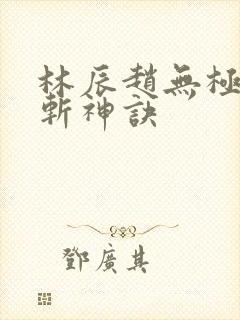 林辰趙無極
斬神訣
鄧廣其